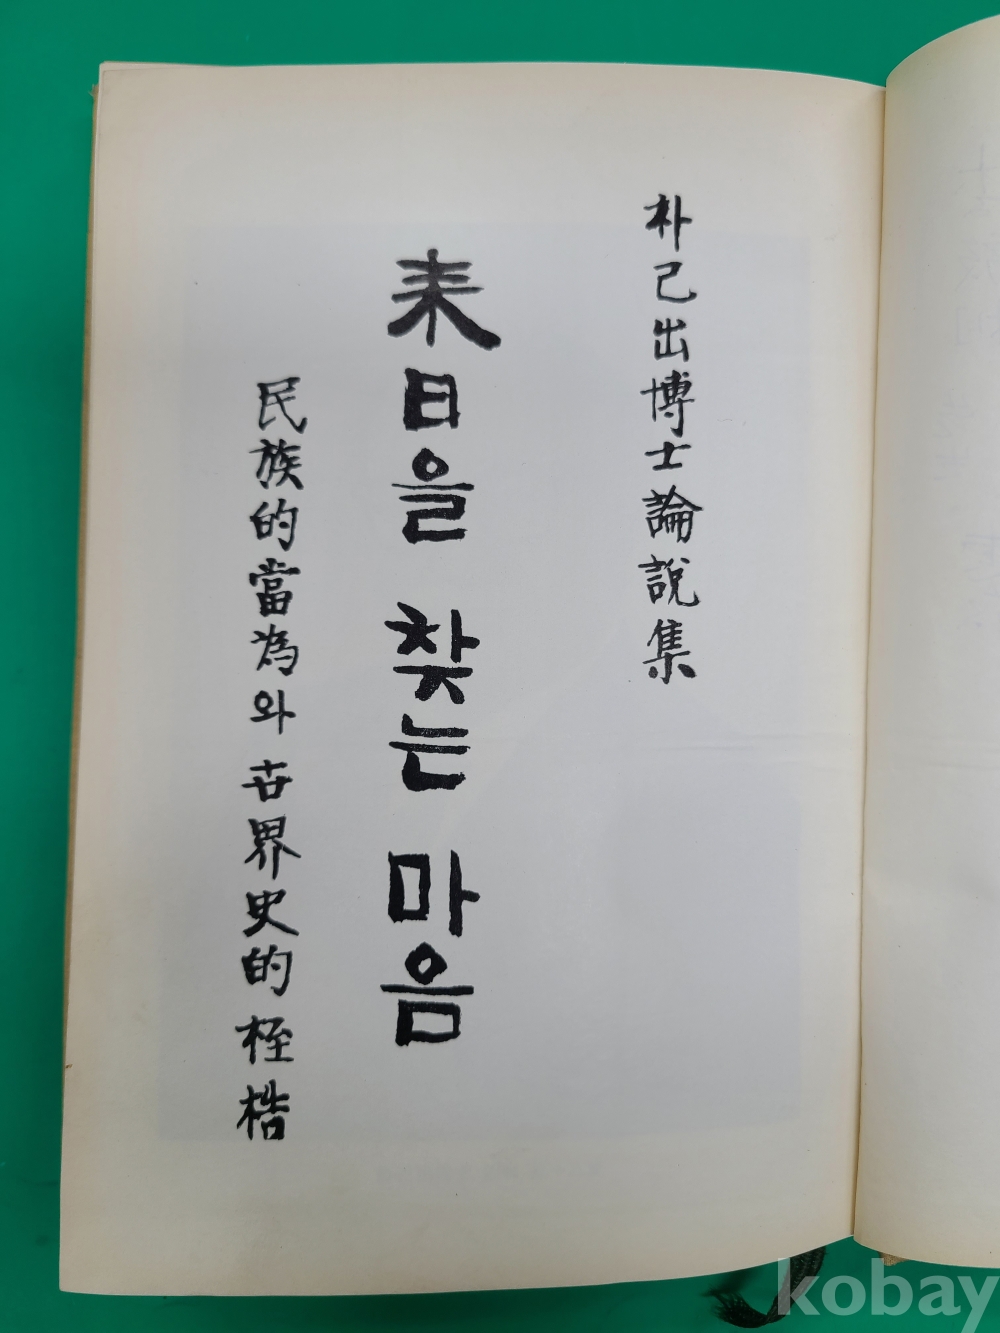 朴己出博士論說集
来日을 찾는 마음
民族的當為와 世界史的 桎梏
kobay